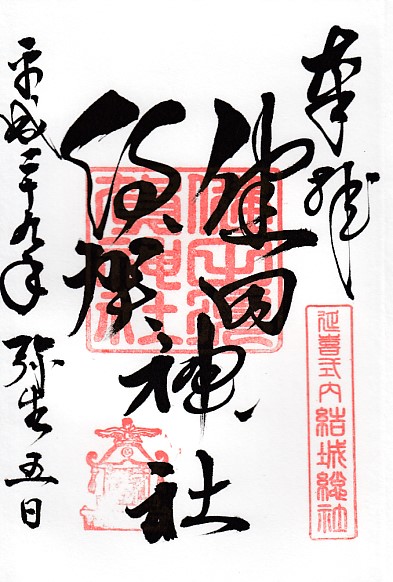 奉拝
延喜式内結城総社
健田
須賀
神社
平成二十九年 弥生五日